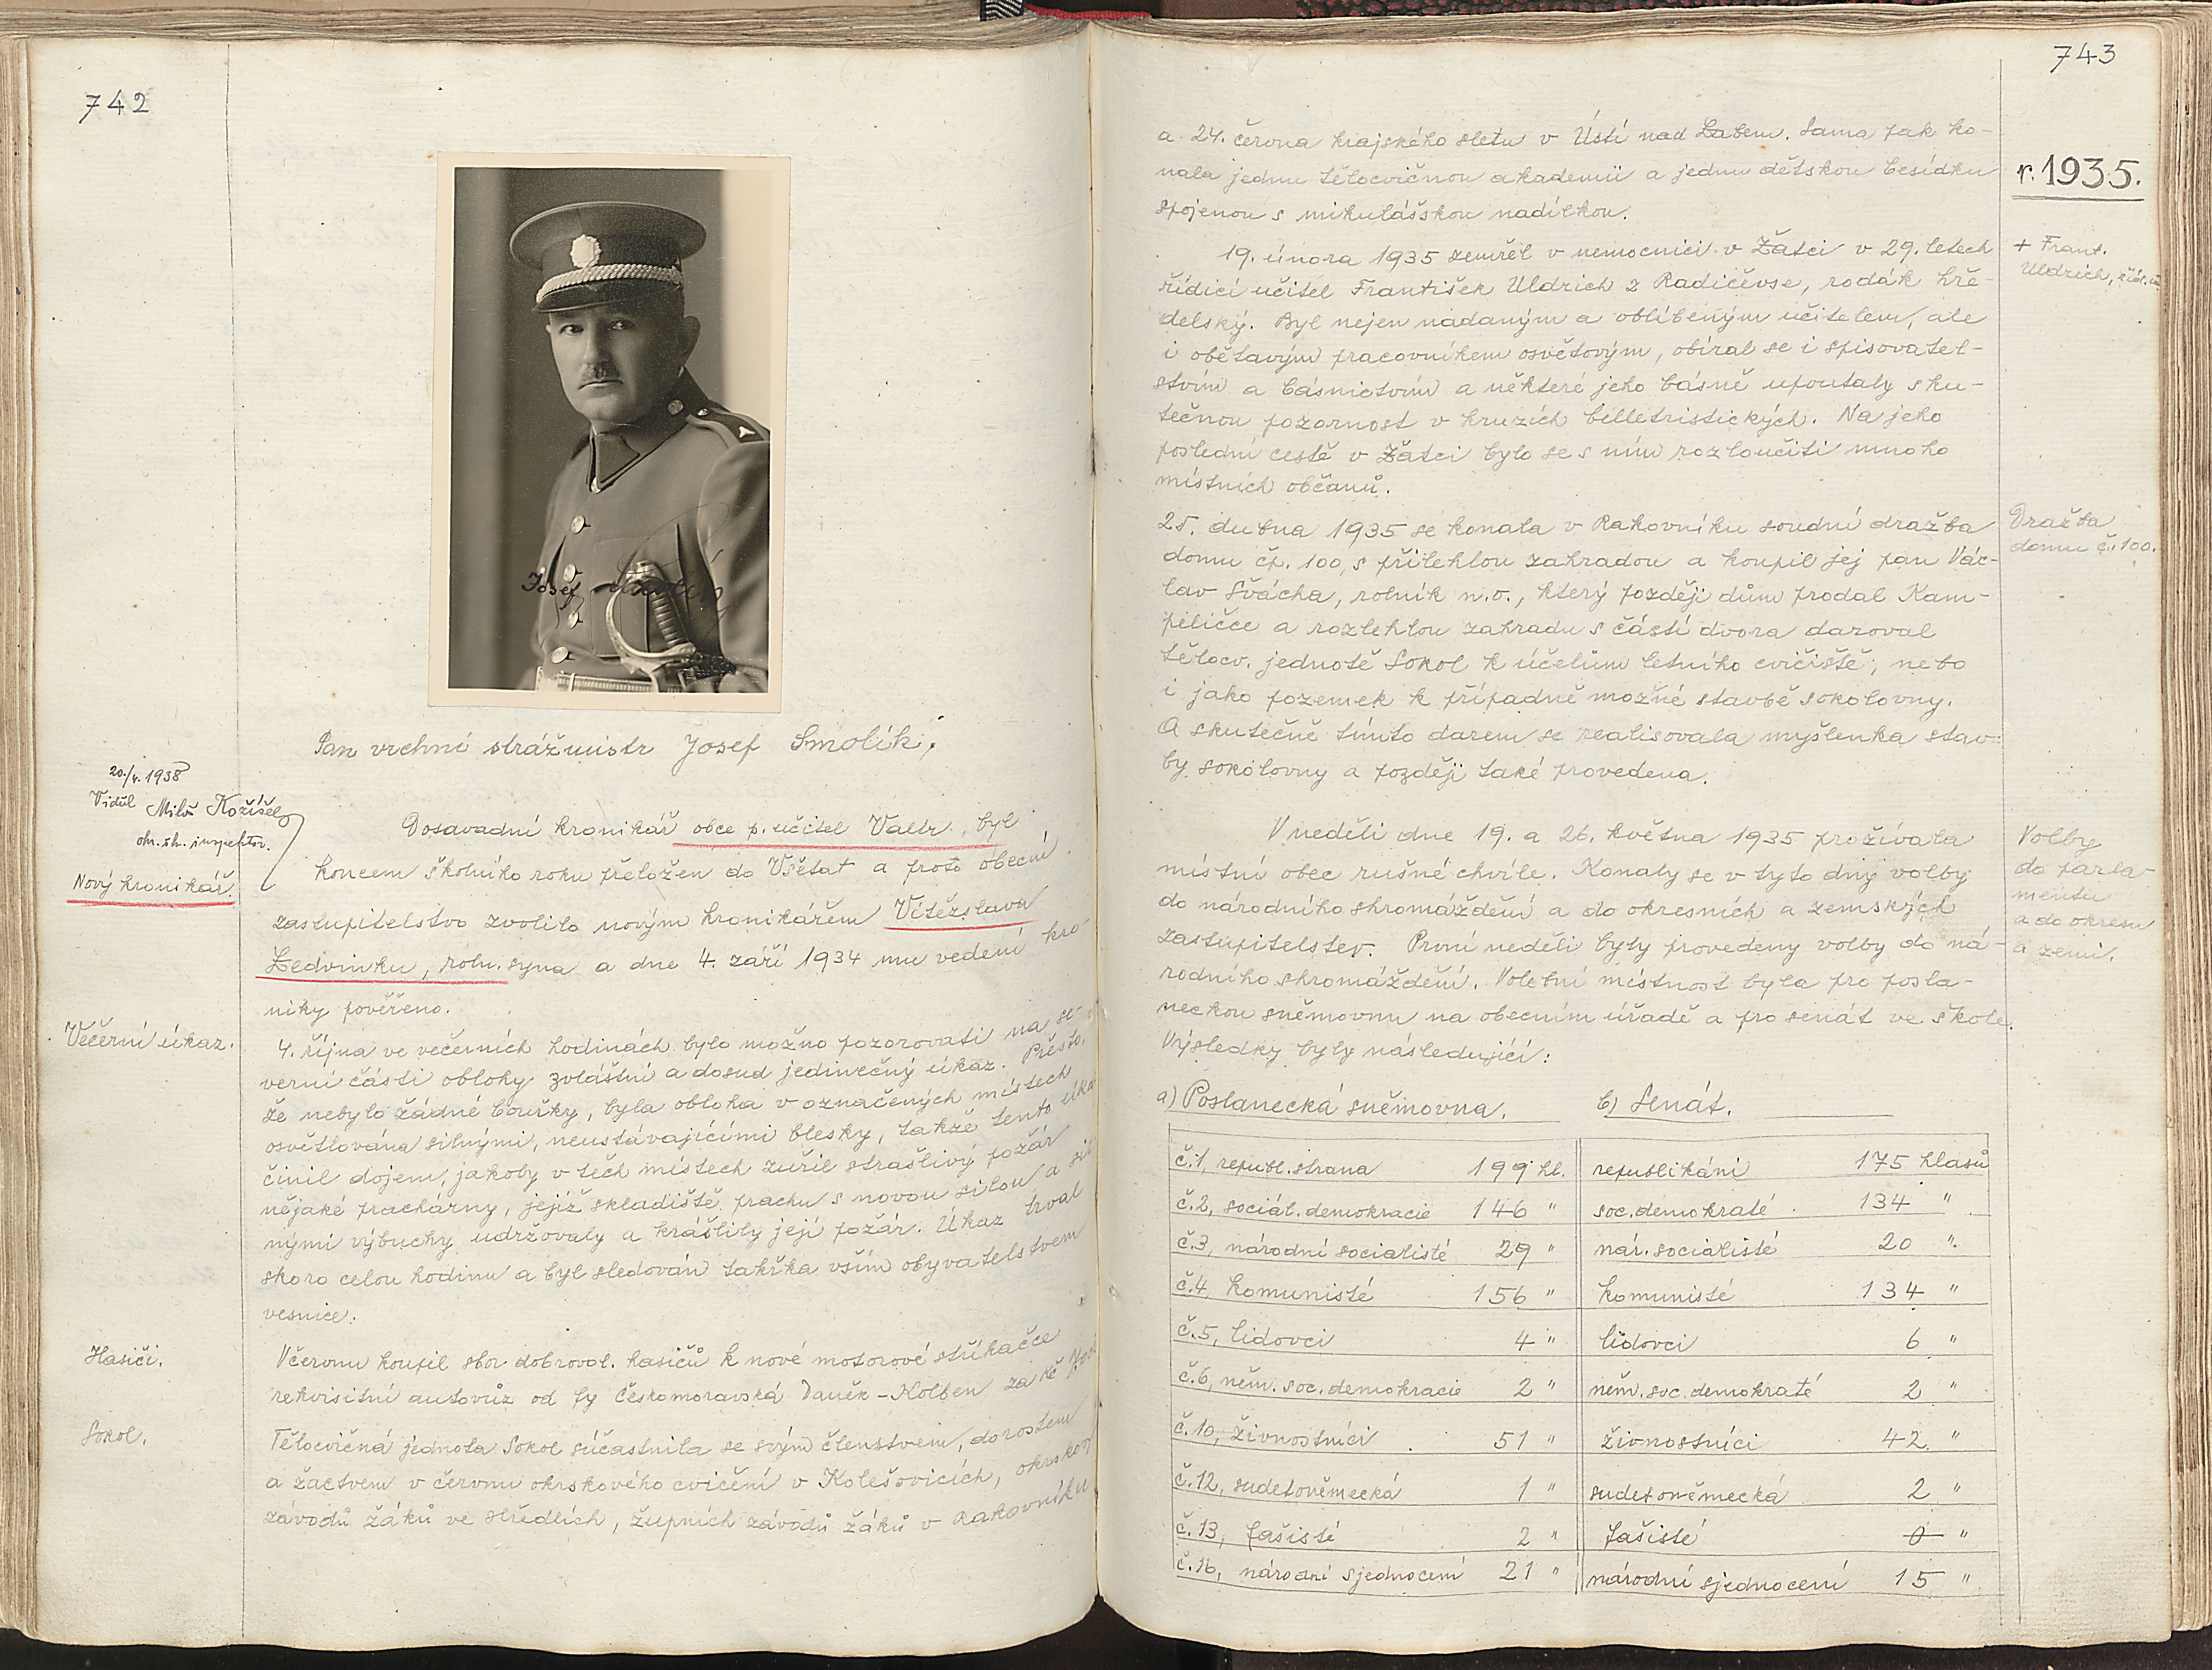 742
Josef
Pan vrchní strážmistr Josef Smolík.
20./V. 1938
Viděl Miloš Kožíšek
okr. šk. inspektor.
Dosavadní kronikář obce p. učitel Valtr, byl
koncem školního roku přeložen do Všetat a proto obecní
Nový kronikář
zastupitelstvo zvolilo novým kronikářem Vítězslava
Ledvinku, roln. syna a dne 4. září 1934 mu vedení kro-
niky pověřeno.
Večerní úkaz.
4. října ve večerních hodinách bylo možno pozorovati na se-
verní části oblohy zvláštní a dosud jedinečný úkaz. Přesto,
že nebylo žádné bouřky, byla obloha v označených místech
osvětlována silnými, neustávajícími blesky, takže tento úkaz
činil dojem, jakoby v těch místech zuřil strašlivý požár
nějaké prachárny, jejíž skladiště prachu s novou silou a sil-
nými výbuchy udržovaly a krášlily její požár. Úkaz trval
skoro celou hodinu a byl sledován takřka vším obyvatelstvem
vesnice.
Hasiči.
V červnu koupil sbor dobrovol. hasičů k nové motorové stříkačce
rekvisitní autovůz od fy Českomoravská Daněk-Kolben za Kč
Sokol.
Tělocvičná jednota Sokol súčastnila se svým členstvem, dorostem
a žactvem v červnu okrskového cvičení v Kolešovicích, okrskov
závodů žáků ve Středlích, župních závodů žáků v Rakovníku
743
r. 1935.
a 24. června krajského sletu v Ústí nad Labem. Sama pak ko-
nala jednu tělocvičnou akademii a jednu dětskou besídku
spojenou s mikulášskou nadílkou.
+ Frant.
Uldrich, říd. uč.
19. února 1935 zemřel v nemocnici v Žatci v 29. letech
řídící učitel František Uldrich z Radičevse, rodák hře-
delský. Byl nejen nadaným a oblíbeným učitelem, ale
i obětavým pracovníkem osvětovým, obíral se i spisovatel-
stvím a básnictvím a některé jeho básně upoutaly sku-
tečnou pozornost v kruzích billetristických. Na jeho
poslední cestě v Žatci bylo se s ním rozloučiti mnoho
místních občanů.
Dražba
domu č. 100.
25. dubna 1935 se konala v Rakovníku soudní dražba
domu čp. 100, s přilehlou zahradou a koupil jej pan Vác-
lav Švácha, rolník n.o., který později dům prodal Kam-
peličce a rozlehlou zahradu s částí dvora daroval
tělocv. jednotě Sokol k účelům letního cvičiště, nebo
i jako pozemek k případně možné stavbě sokolovny.
A skutečně tímto darem se realisovala myšlenka stav-
by sokolovny a později také provedena.
Volby
do parla-
mentu
a do okresu
a zemi.
V neděli dne 19. a 26. května 1935 prožívala
místní obec rušné chvíle. Konaly se v tyto dny volby
do národního shromáždění a do okresních a zemských
zastupitelstev. První neděli byly provedeny volby do ná-
rodního shromáždění. Volební místnost byla pro posla-
neckou sněmovnu na obecním úřadě a pro senát ve škole.
Výsledky byly následující:
a) Poslanecká sněmovna. b) Senát.
č. 1, republ. strana 199 hl. republikáni 175 hlasů
č. 2, sociál. demokracie 146 " soc. demokraté 134 "
č. 3, národní socialisté 29 " nár. socialisté 20 "
č. 4, komunisté 156 " komunisté 134 "
č. 5, lidovci 4 " lidovci 6 "
č. 6, něm. soc. demokracie 2 " něm. soc. demokraté 2 "
č. 10, živnostníci 51 " živnostníci 42 "
č. 12, sudetoněmecká 1 " sudetoněmecká 2 "
č. 13, fašisté 2 " fašisté 0 "
č. 16, národní sjednocení 21 " národní sjednocení 15 "